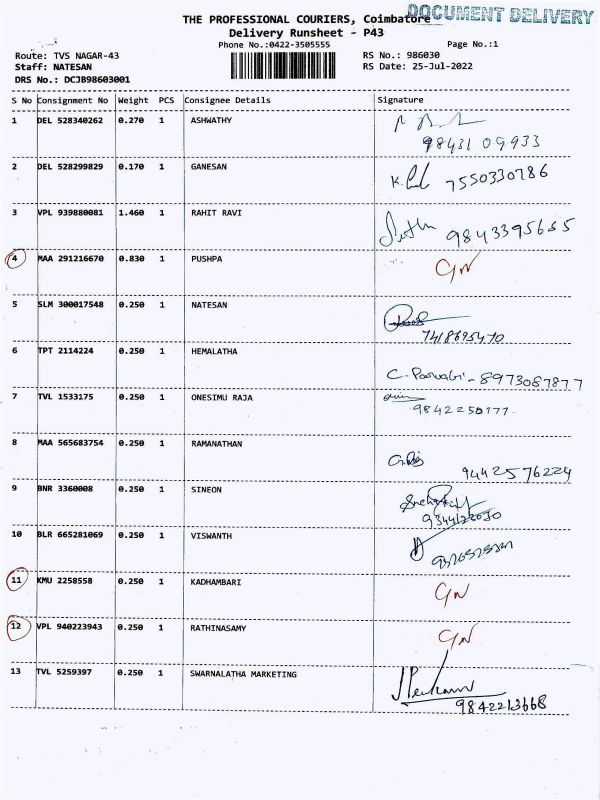 DOCUMENT DELIVERY
THE PROFESSIONAL COURIERS, Coimbatore
Delivery Runsheet - P43
Phone No.:0422-3505555
Page No.:1
Route: TVS NAGAR-43
RS No.: 986030
Staff: NATESAN
RS Date: 25-Jul-2022
DRS No.: DCJB98603001
S No Consignment No Weight PCS Consignee Details Signature
1 DEL 528340262 0.270 1 ASHWATHY
98431 09933
2 DEL 528299829 0.170 1 GANESAN
7550330786
3 VPL 939880081 1.460 1 RAHIT RAVI
9843395685
4 MAA 291216670 0.830 1 PUSHPA
5 SLM 300017548 0.250 1 NATESAN
7418695470
6 TPT 2114224 0.250 1 HEMALATHA
8973087877
7 TVL 1533175 0.250 1 ONESIMU RAJA
9842250177
8 MAA 565683754 0.250 1 RAMANATHAN
9442576224
9 BNR 3360008 0.250 1 SINEON
10 BLR 665281069 0.250 1 VISWANTH
11 KMU 2258558 0.250 1 KADHAMBARI
12 VPL 940223943 0.250 1 RATHINASAMY
13 TVL 5259397 0.250 1 SWARNALATHA MARKETING
9842213668